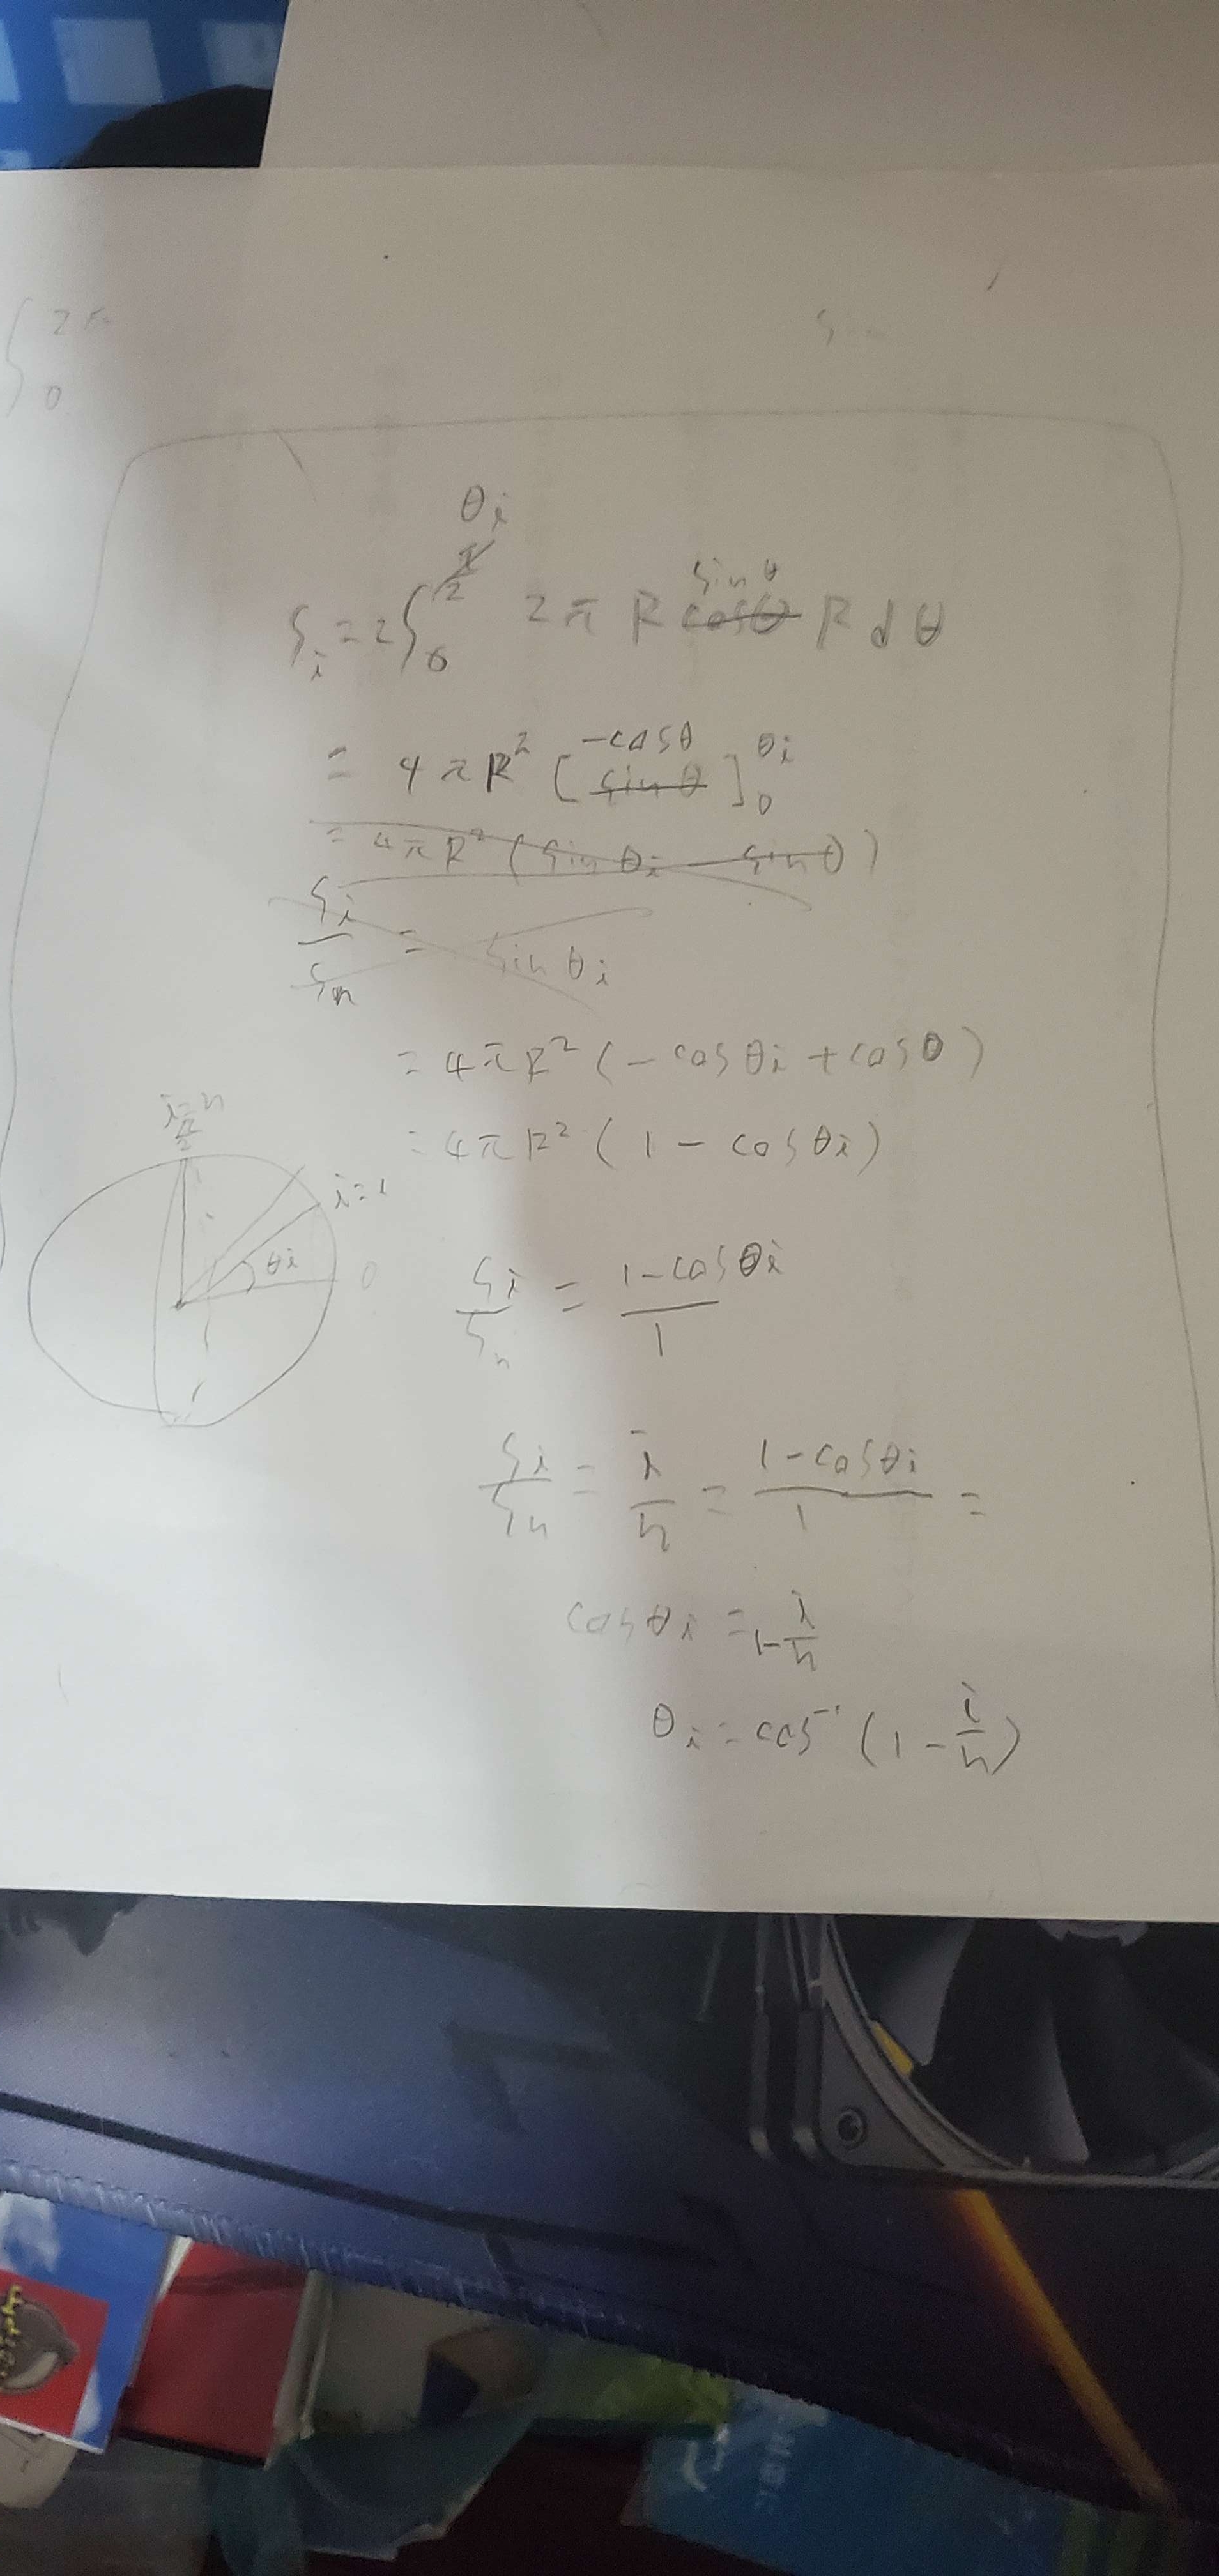 ∫₀^2π
S
θi
π/2 sinθ
Si = 2∫₀ 2πR cosθ R dθ
= 4πR² [ -cosθ sinθ ]₀^θi
= 4πR² (sinθi - sin0)
Si/Sn = sinθi
= 4πR² (-cosθi + cos0)
= 4πR² (1 - cosθi)
i=n
π/2
i=1
θi
0
Si/Sn = (1-cosθi)/1
Si/Sn = i/n = (1-cosθi)/1 =
cosθi = 1-i/n
θi = cos⁻¹ (1 - i/n)